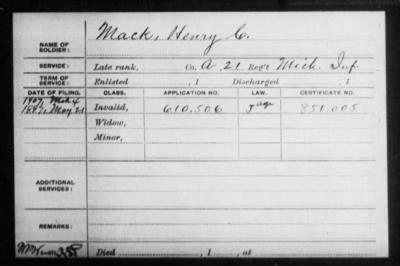 NAME OF SOLDIER: Mack, Henry C.
SERVICE: Late rank, Co. A, 21 Reg't Mich. Inf.
TERM OF SERVICE: Enlisted , 1 Discharged , 1
DATE OF FILING. CLASS. APPLICATION NO. LAW. CERTIFICATE NO.
1907, Mch 4
May 21 Invalid, 610.506 J age 851.005
Widow,
Minor,
ADDITIONAL SERVICES:
REMARKS:
Died , 1 , at